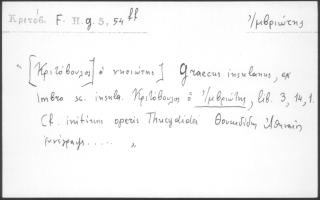 Κριτόβ. F. II. g. 5, 54 ff Ἰμβριώτης
[Κριτόβουλος] ὁ νησιώτης] Graecus insulanus, ex
Imbro sc. insula. Κριτόβουλος ὁ Ἰμβριώτης, lib. 3, 14, 1.
Cf. initium operis Thucydidei Θουκυδίδης Ἀθηναῖος
ξυνέγραψε.....